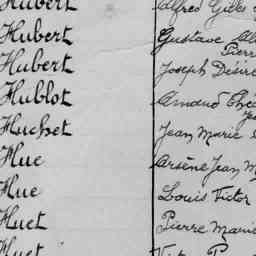 Hubert Alfred Gilles
Hubert Gustave
Pierre
Hubert Joseph Désiré
Hublot Amand
Huchet Jean Marie
Hue Arsène Jean M
Hue Louis Victor
Huet Pierre Marie
Huet Victor P